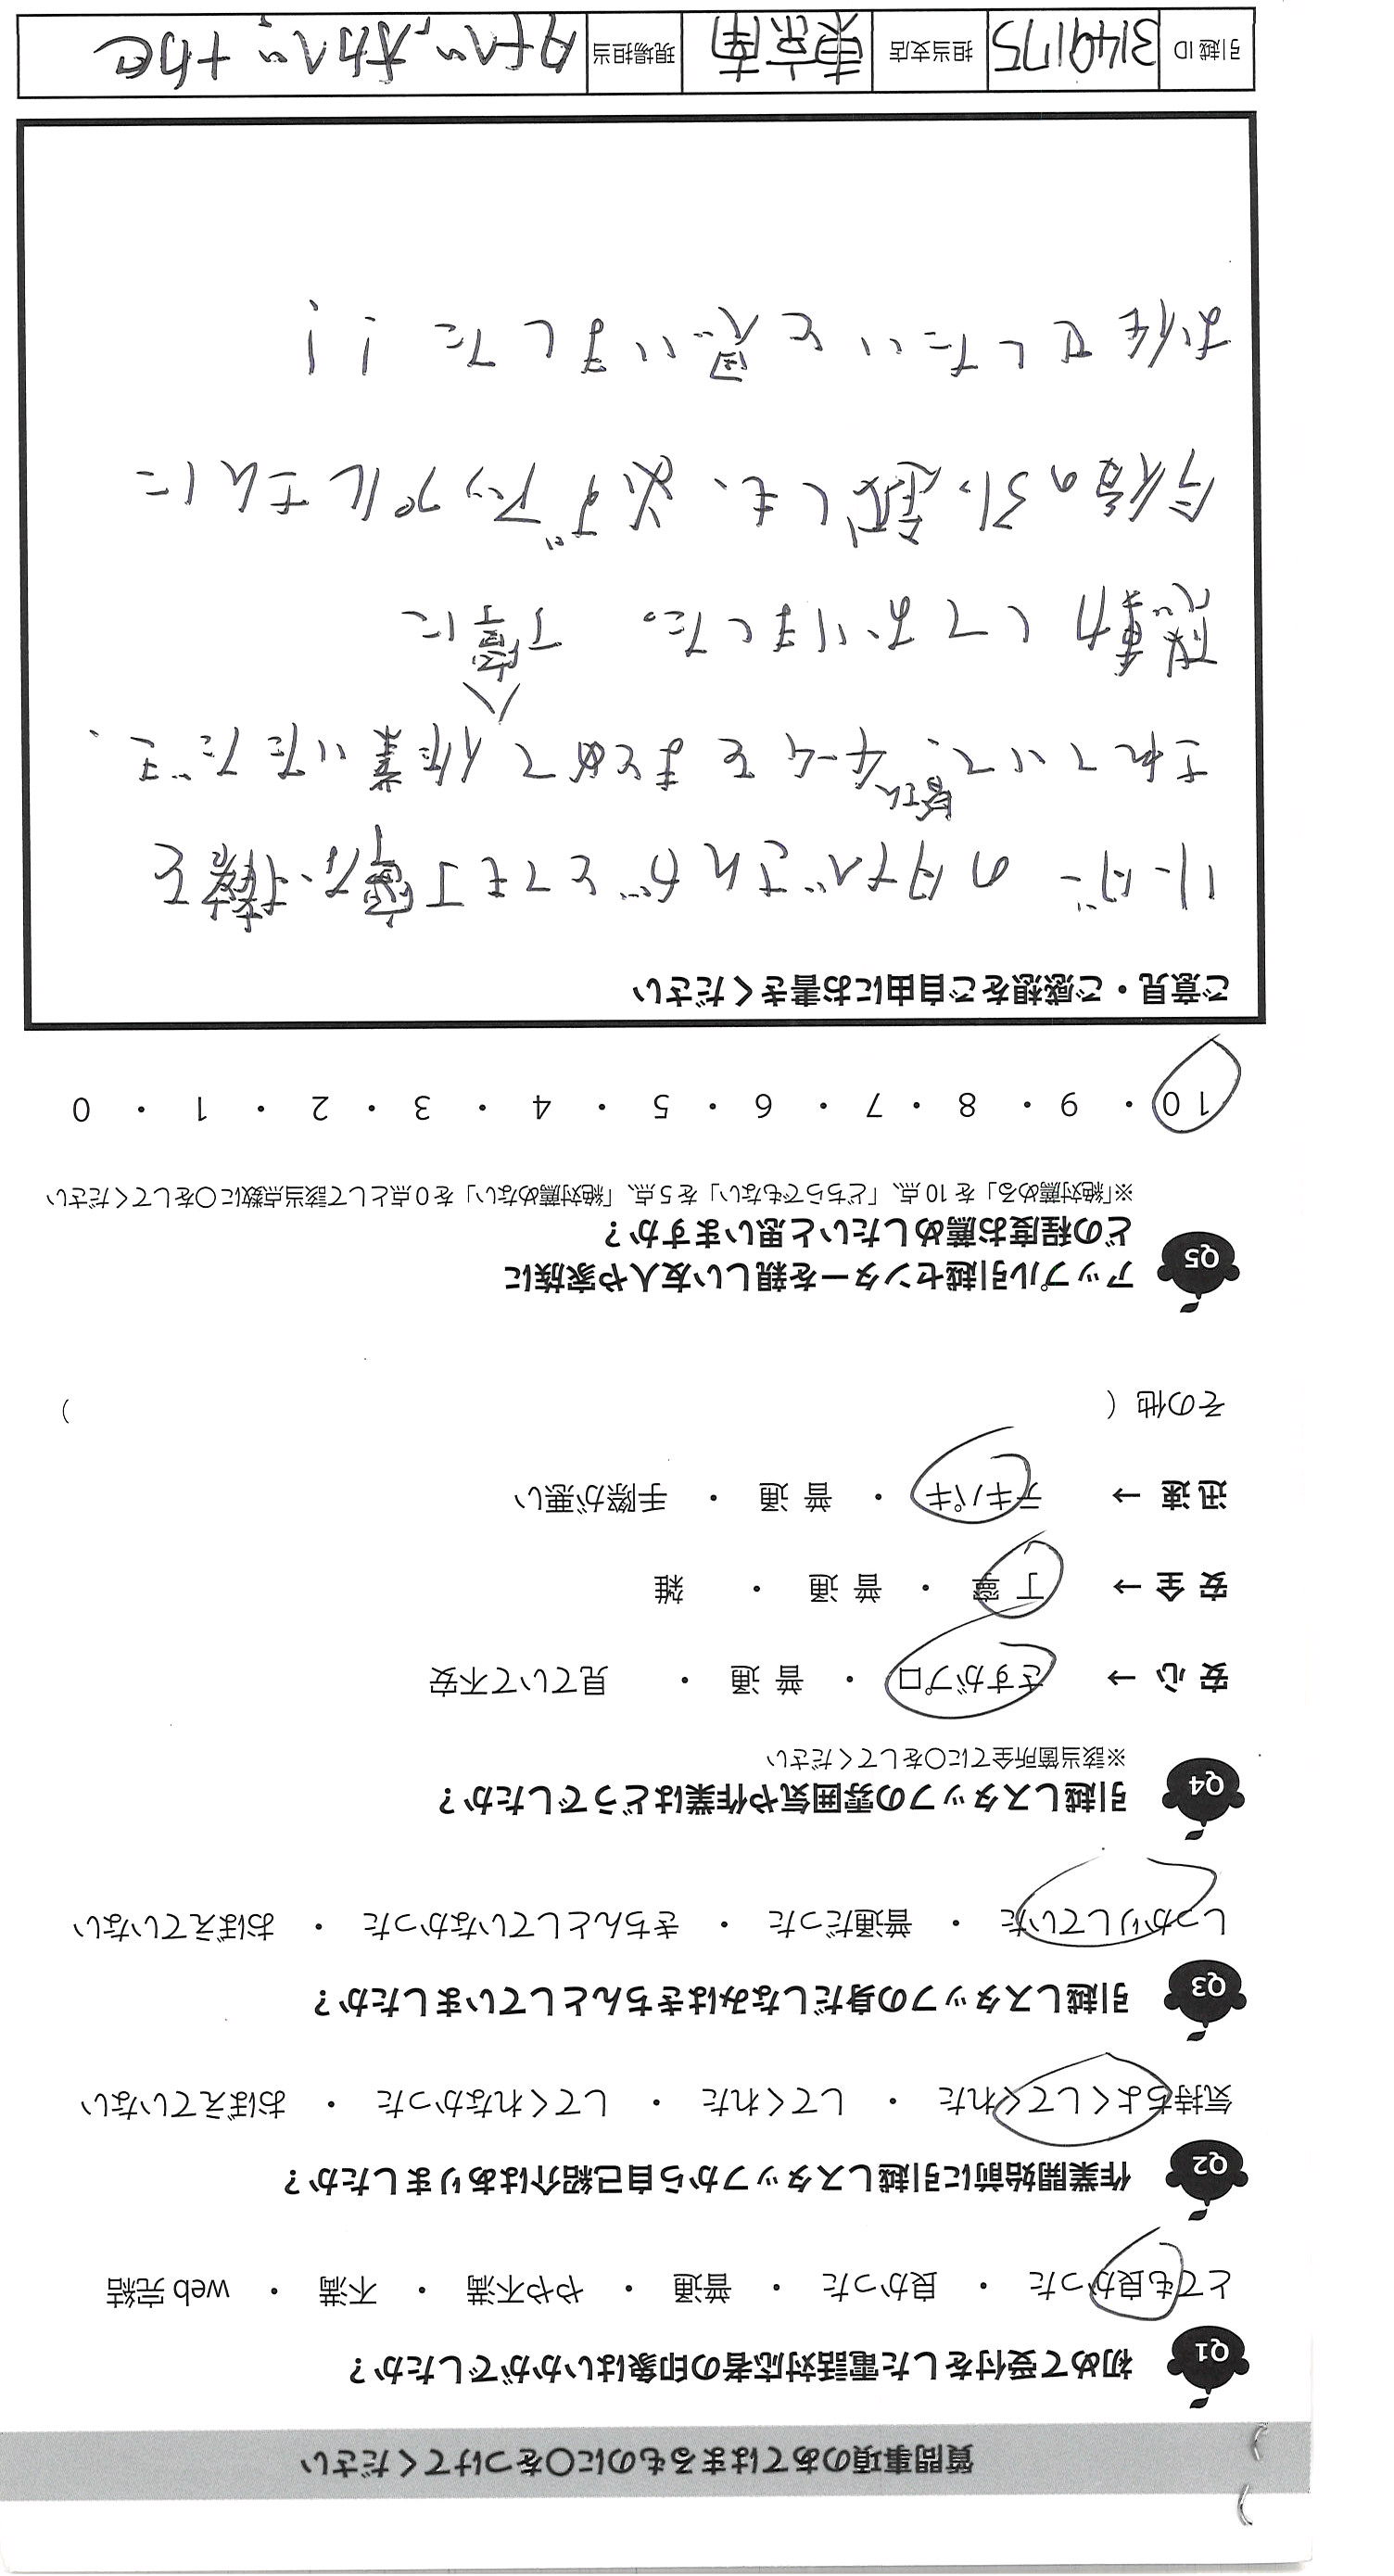 質問事項のあてはまるものに〇をつけてください
Q1 初めて受付をした電話対応者の印象はいかがでしたか？
とても良かった ・ 良かった ・ 普通 ・ やや不満 ・ 不満 ・ web 完結
Q2 作業開始前に引越しスタッフから自己紹介はありましたか？
気持ちよくしてくれた ・ してくれた ・ してくれなかった ・ おぼえていない
Q3 引越しスタッフの身だしなみはきちんとしていましたか？
しっかりしていた ・ 普通だった ・ きちんとしていなかった ・ おぼえていない
Q4 引越しスタッフの雰囲気や作業はどうでしたか？
※該当箇所全てに〇をしてください
安 心 → さすがプロ ・ 普 通 ・ 見ていて不安
安 全 → 丁 寧 ・ 普 通 ・ 雑
迅 速 → テキパキ ・ 普 通 ・ 手際が悪い
その他（ ）
Q5 アップル引越センターを親しい友人や家族に
どの程度お薦めしたいと思いますか？
※「絶対薦める」を 10 点、「どちらでもない」を 5 点、「絶対薦めない」を 0 点として該当点数に〇をしてください
10 ・ 9 ・ 8 ・ 7 ・ 6 ・ 5 ・ 4 ・ 3 ・ 2 ・ 1 ・ 0
ご意見・ご感想をご自由にお書きください
リーダーの さんがとても丁寧な接客を
されていて、 チームをまとめて作業いただき、
感動しておりました。 丁寧に
今後の引越しも、必ずアップルさんに
お任せしたいと思いました！！
引越 ID 3149175 担当支店 東京南 現場担当